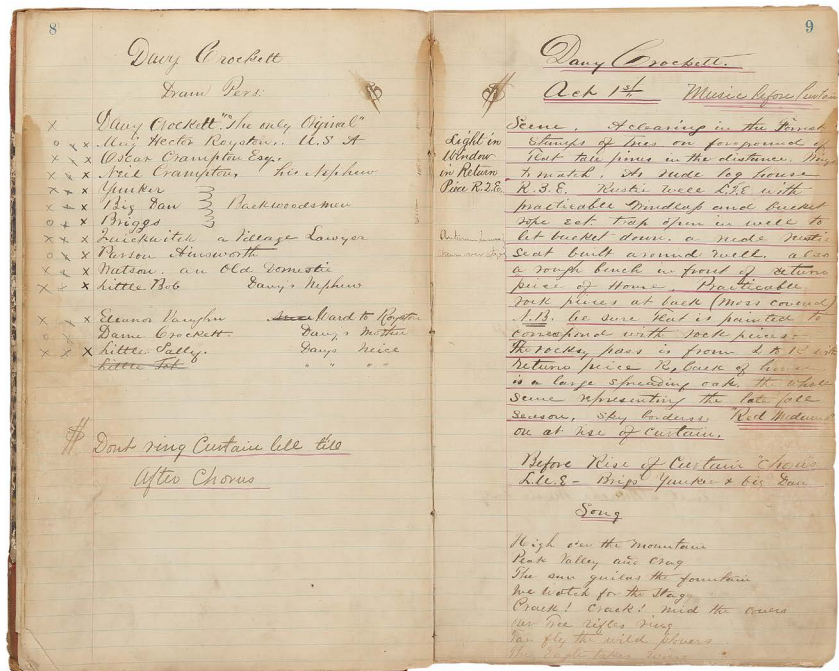 8
Davy Crockett
Dram Pers:
x Davy Crockett. "The only Original"
o x x Maj Hector Royston. U.S A
x x x Oscar Crampton Esq.
x x x Neil Crampton, his Nephew
x x x Yunker
x x x Big Dan } Backwoodsmen
o x x Briggs
x x x Quickwitch a Village Lawyer
o x x Parson Ainsworth
x x x Watson. an Old Domestic
x x x Little Bob Davy's Nephew
x x x Eleanor Vaughn Ward to Royston
o x x Dame Crockett. Davy's Mother
x x x Little Sally. Davys Neice
Little Tot " " " "
Dont ring Curtain bell till
After Chorus
9
Davy Crockett.
Act 1st Music before Curtain
Light in
Window
in Return
Piece R.2.E.
Scene. A clearing in the Forrest
Stumps of trees on foreground of
flat tall pines in the distance. Wings
to match. A rude log house
R.3.E. Rustic well L.2.E with
practicable Windlass and bucket
rope set trap open in well to
let bucket down. a rude rustic
seat built around well. also
a rough bench in front of return
peice of House. Practicable
rock pieces at back (Moss covered
N.B. be sure flat is painted to
correspond with rock pieces.
The rocky pass is from L to R with
return peice R, back of house
is a large spreading oak. the whole
scene representing the late fall
season, Sky borders. Red Mediums
on at rise of curtain.
Before Rise of Curtain "Chorus"
L.U.E - Brigs Yunker & big Dan
Song
High over the Mountain
Peak Valley and Crag
The sun guilds the fountain
We Watch for the Stagg
Crack! Crack! mid the
our True rifles ring
fly the wild plovers
The Eagle takes